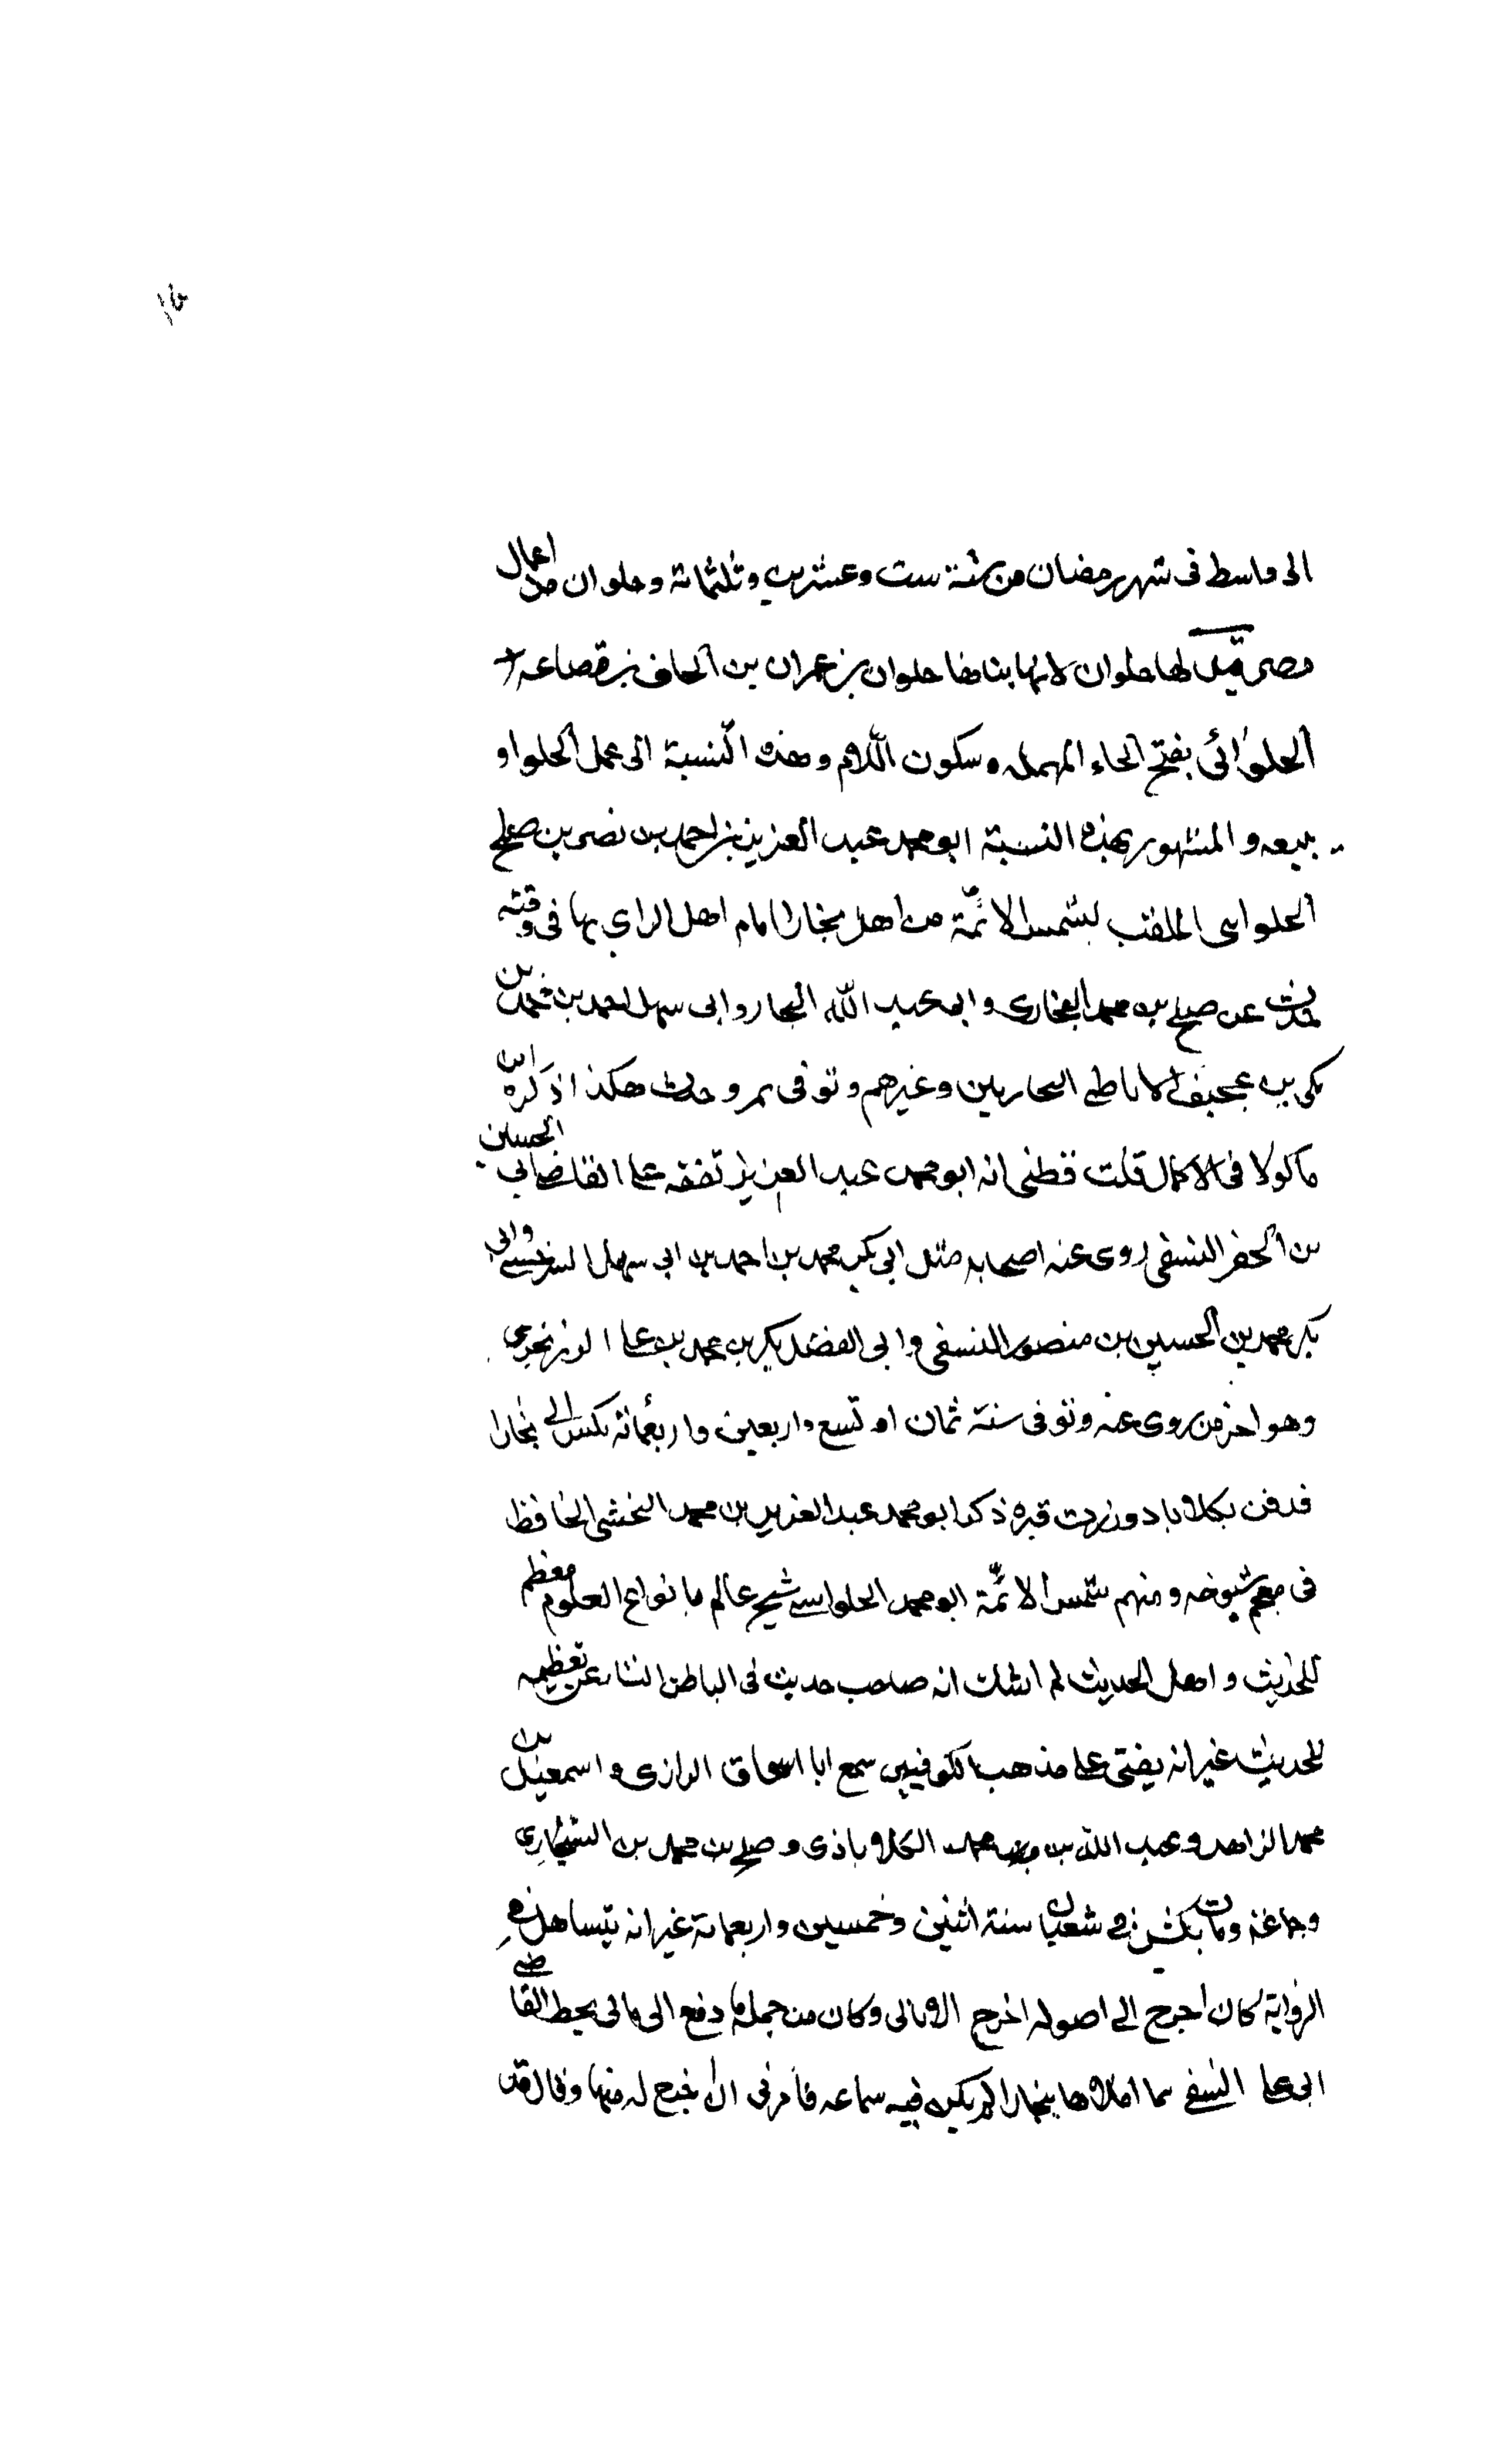 الى واسط فى شهر رمضان من سنة ست وعشرين وثلثمائة وحلوان من اعمال
مصر قيل لها حلوان لانها بناها حلوان بن عمران بن الحاف بن قصاعه
الحلوائى بفتح الحاء المهمله وسكون اللام وهذه النسبة الى عمل الحلوا و
بيعه و المشهور بهذه النسبة ابو محمد عبد العزيز بن احمد بن نصر بن صلح
الحلواىى الملقب بشمس الائمة من اهل بخارا امام اهل الراي بها فى وقته
حدث عن صلح بن محمد البخارى و ابى عبد الله البخار و ابى سهل احمد بن محمد بن
مكى بن عجيف الاناطى البحاريين وغيرهم وتوفى بمرو حدث هكذا ذكره ابن
ماكولا فى الاكمال قلت فظنى انه ابو محمد عبد العزيز تفقه على القاضى ابى الحسين
بن الخضر النسفى روى عنه اصحابه مثل ابى بكر محمد بن احمد بن ابى سهل السرخسى وابى
بكر محمد بن الحسين بن منصور النسفى و ابى الفضل بكر بن محمد بن على الزرنجرى
وهو اخر من روى عنه وتوفى سنة ثمان او تسع واربعين واربعمائة بكس الى بخارا
فدفن بكلاباد وزرت قبره ذكر ابو محمد عبد العزيز بن محمد النخشى الحافظ
فى معجم شيوخه ومنهم شمس الائمة ابو محمد الحلواىى شيخ عالم بانواع العلوم معظم
للحديث و اهل الحديث لم اشك انه صاحب حديث فى الباطن تعظيمه
للحديث غير انه يفتى على مذهب الكوفيين سمع ابا اسحاق الرازى و اسمعيل بن
محمد الزاهد و عبد الله بن محمد الكلاباذى و صلح بن محمد بن
وجماعة ومات بكش فى شعبان سنة اثنين وخمسين واربعمائة غير انه يتساهل فى
الرواية كان اخرج الى اصوله اخرج الامالى وكان من جملة ما دفع الى امالى بخط القاضى
ابى على النسفى مما املاها ببخارا لم يكن فيه سماعه فامرنى ان اخرج له منها وقال قد